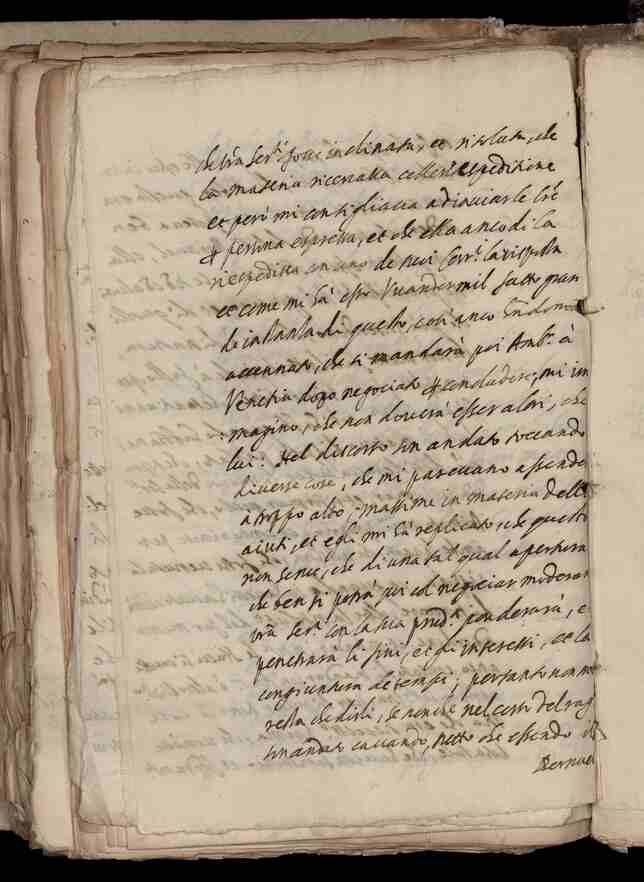 che v͞ra Ser.tà fosse inclinata, et risoluta, che
la materia ricercava celler.e espeditione
et però mi consigliava ad inviarle
persona espressa, et che ella anco di la
rispedisse con uno de suoi Corr.i la risposta
et come mi hà esso Vuandermil fatto gran
de instanza di questo, così anco
accennato, che si mandarà poi Amb.r à
Venetia dopo negociato concludere, mi im
:magino, che non doverà esser altri, che
lui: Nel discorso son andato toccando
diverse cose, che mi parevano ascender
à troppo alto, massime in materia delli
aiuti, et egli mi hà replicato, che questo
non serve, che di una tal qual apertura
che ben si potrà poi col negociar moderar
v͞ra Ser.tà con la sua prud.a ponderarà, e
penetrarà li fini, et gli interessi, et la
congiuntura de tempi; pertanto non m
resta che dirli, se non che nel corso del rag
son andato cavando, netto che essendo il
Bernevel